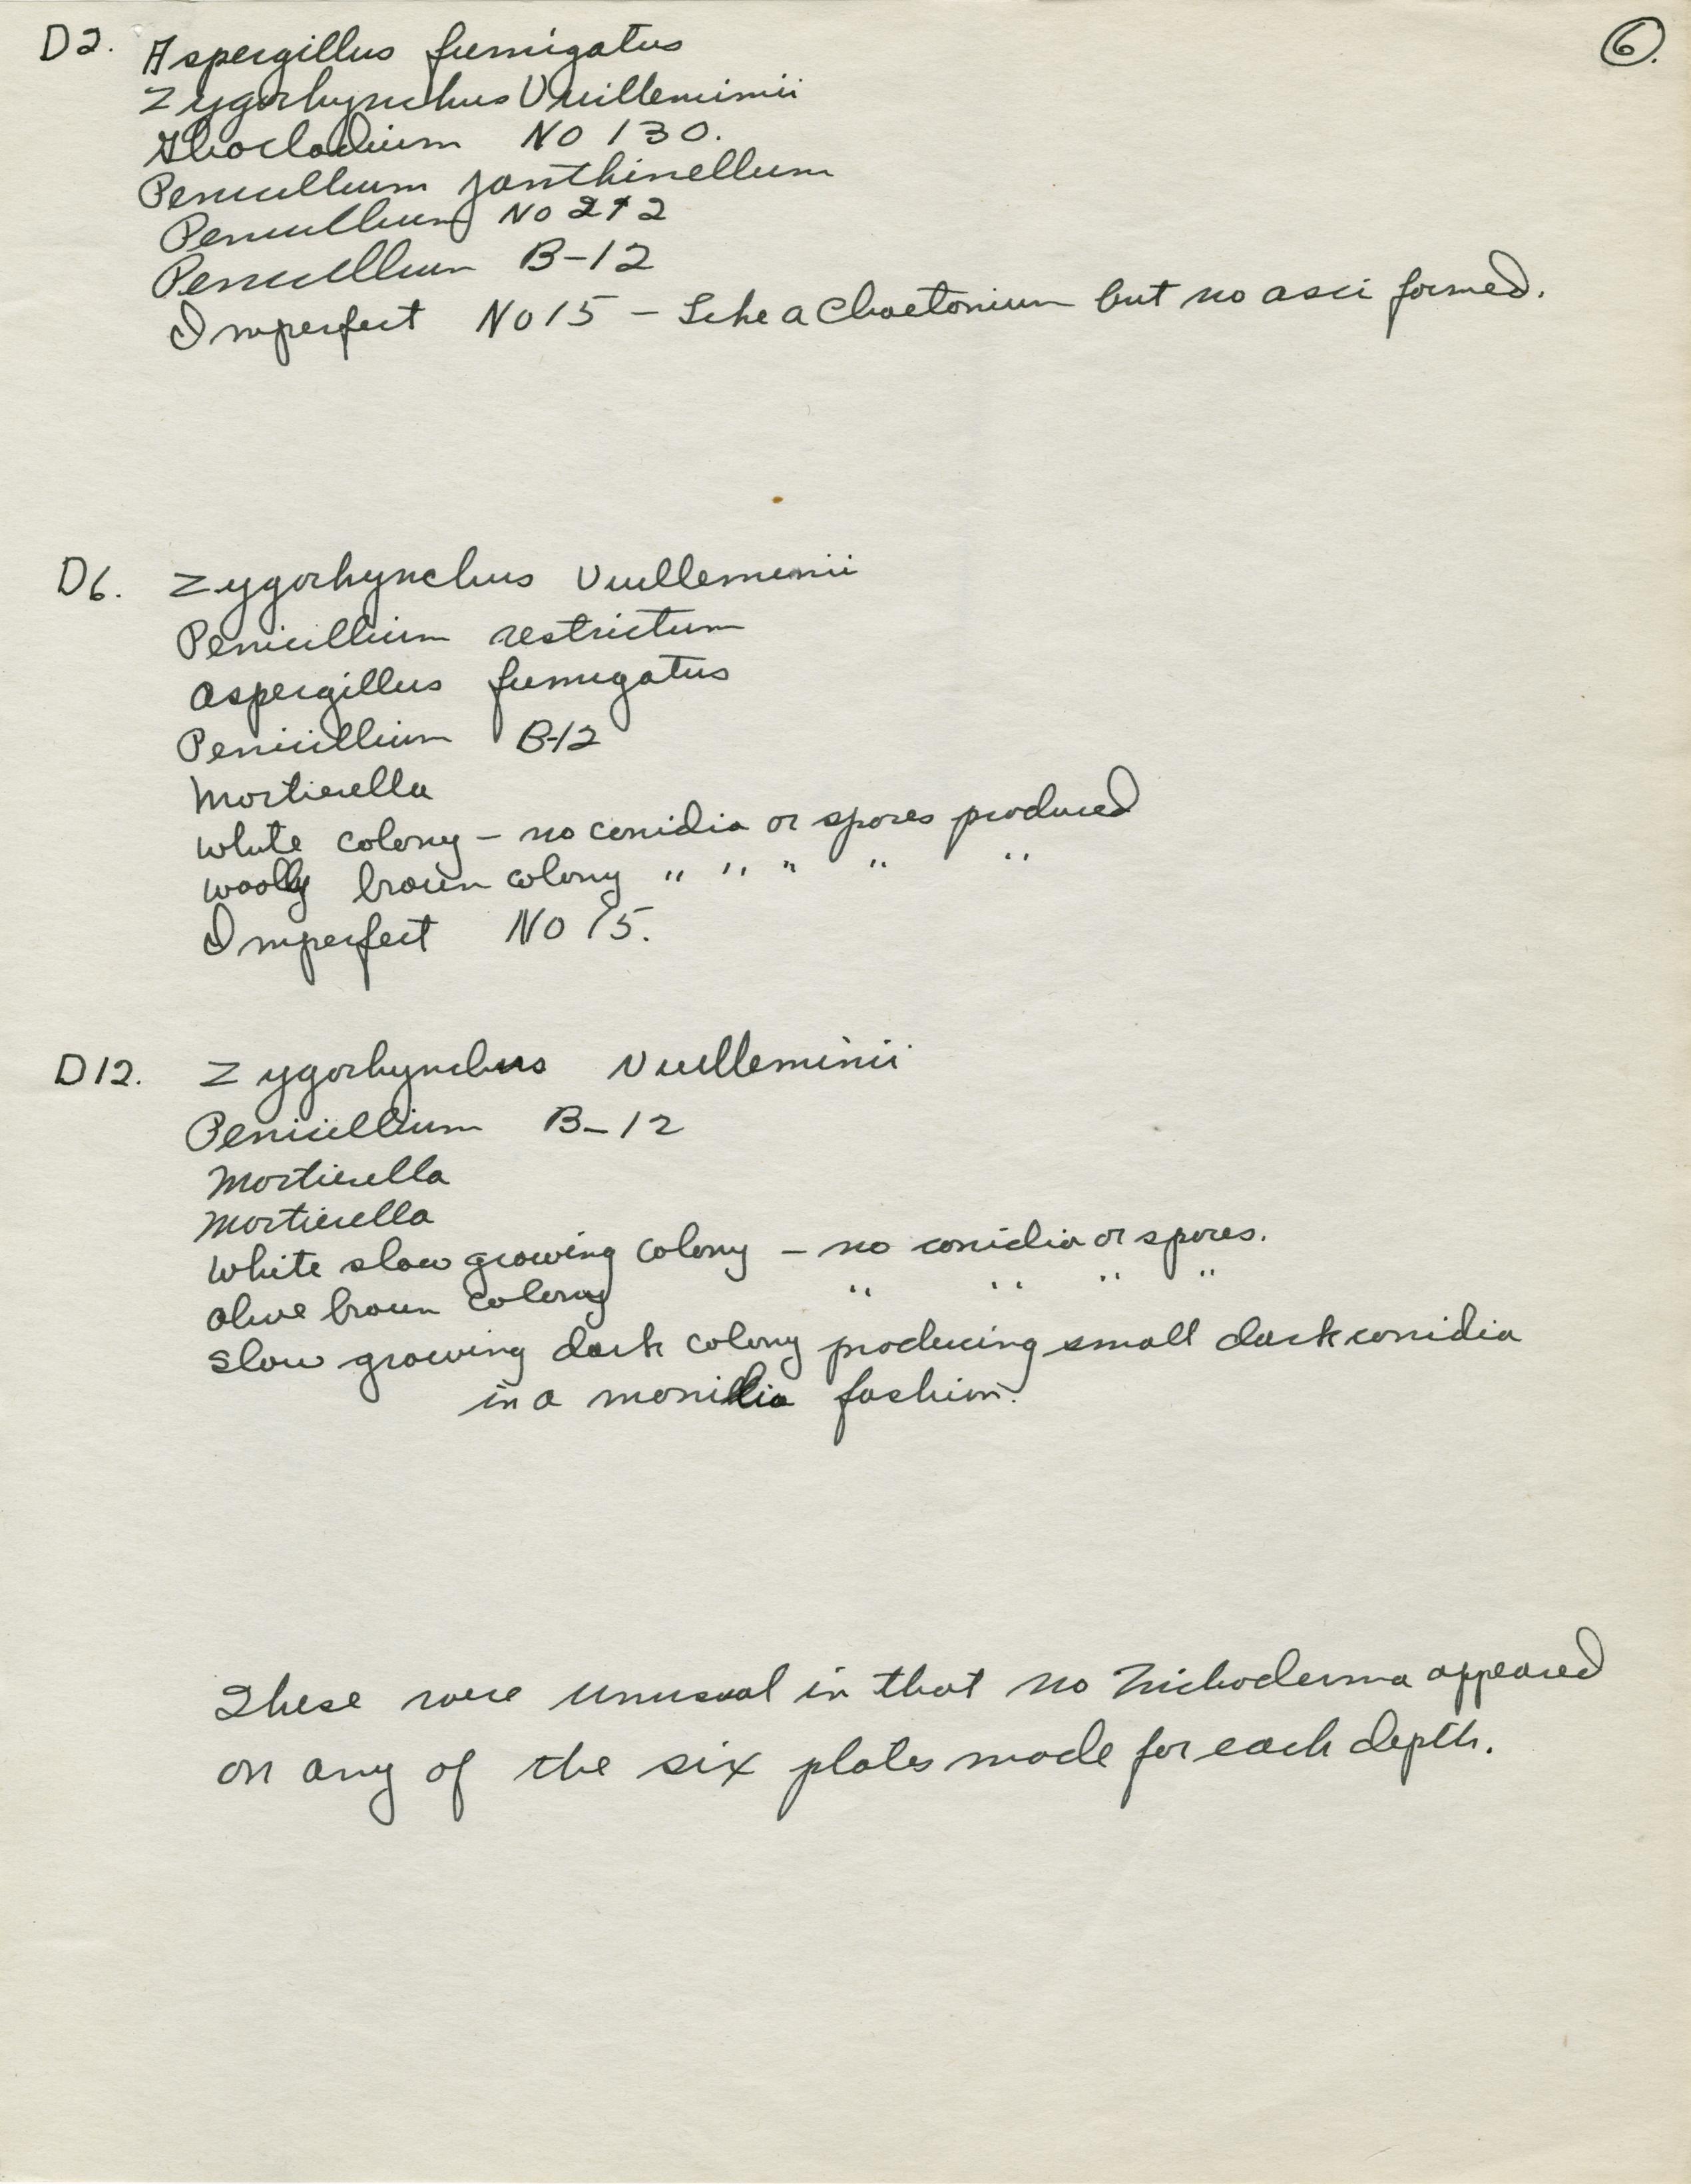 ⑥.
D2. Aspergillus fumigatus
Zygorhynchus Vuilleminii
Gliocladium No 130.
Penicillium janthinellum
Penicillium No 212
Penicillium B-12
Imperfect No 15 - Like a Chaetonium but no asci formed.
D6. Zygorhynchus Vuilleminii
Penicillium restrictum
Aspergillus fumigatus
Penicillium B-12
Mortierella
White colony - no conidia or spores produced
woolly brown colony " " " " "
Imperfect No 15.
D12. Zygorhynchus Vuilleminii
Penicillium B-12
Mortierella
Mortierella
White slow growing colony - no conidia or spores.
olive brown colony " " " "
slow growing dark colony producing small dark conidia
in a monilia fashion.
These were unusual in that no Trichoderma appeared
on any of the six plates made for each depth.